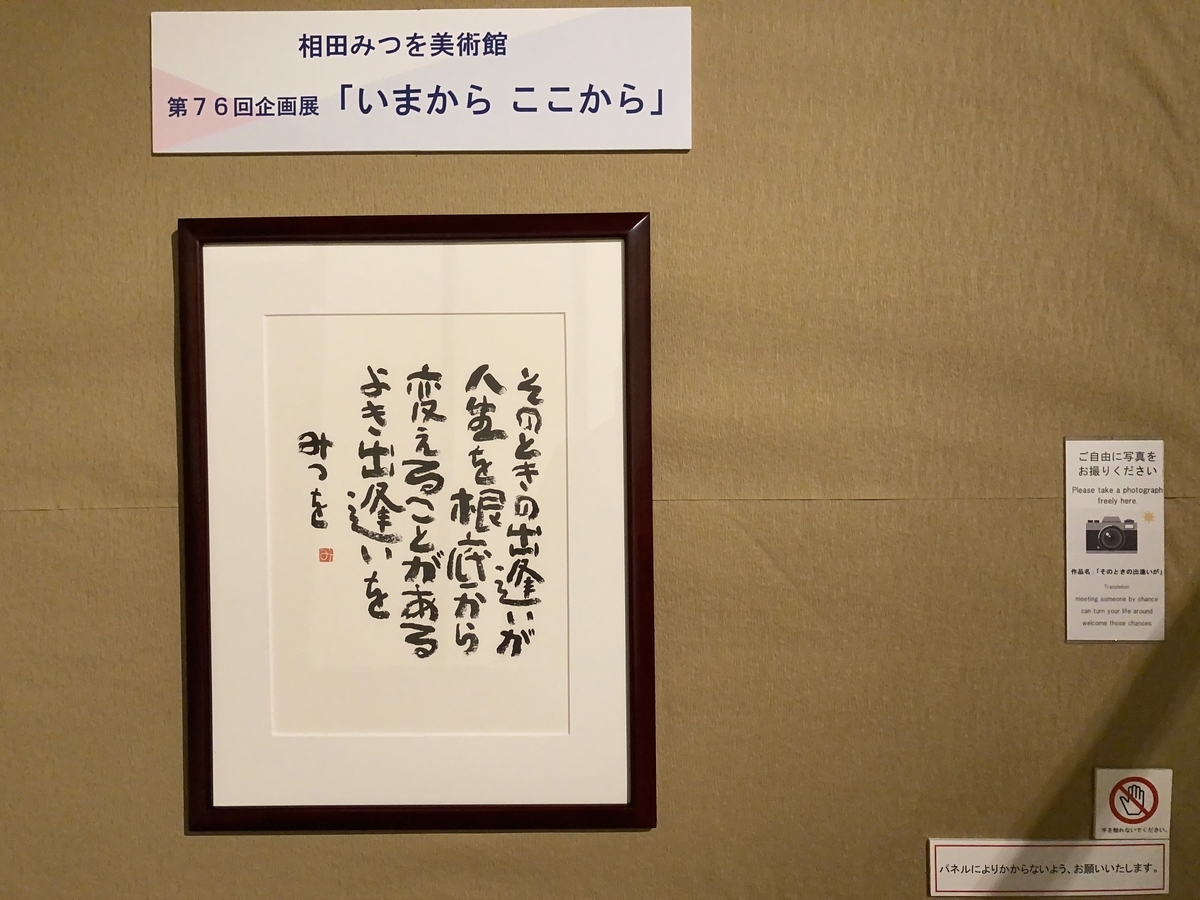 相田みつを美術館
第７６回企画展「いまから ここから」
そのときの出逢いが
人生を根底から
変えることがある
よき出逢いを
みつを
ご自由に写真を
お撮りください
Please take a photograph
freely here.
作品名：「そのときの出逢いが」
Translation
meeting someone by chance
can turn your life around
welcome those chances
手を触れないでください。
パネルによりかからないよう、お願いいたします。